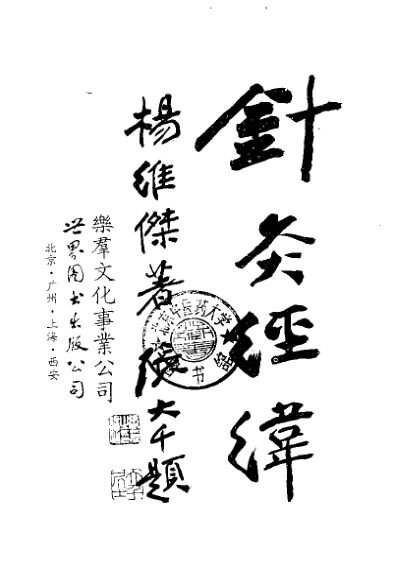 針灸經緯
楊維傑著 張大千題
樂羣文化事業公司
世界图书出版公司
北京·广州·上海·西安
北京中医药大学